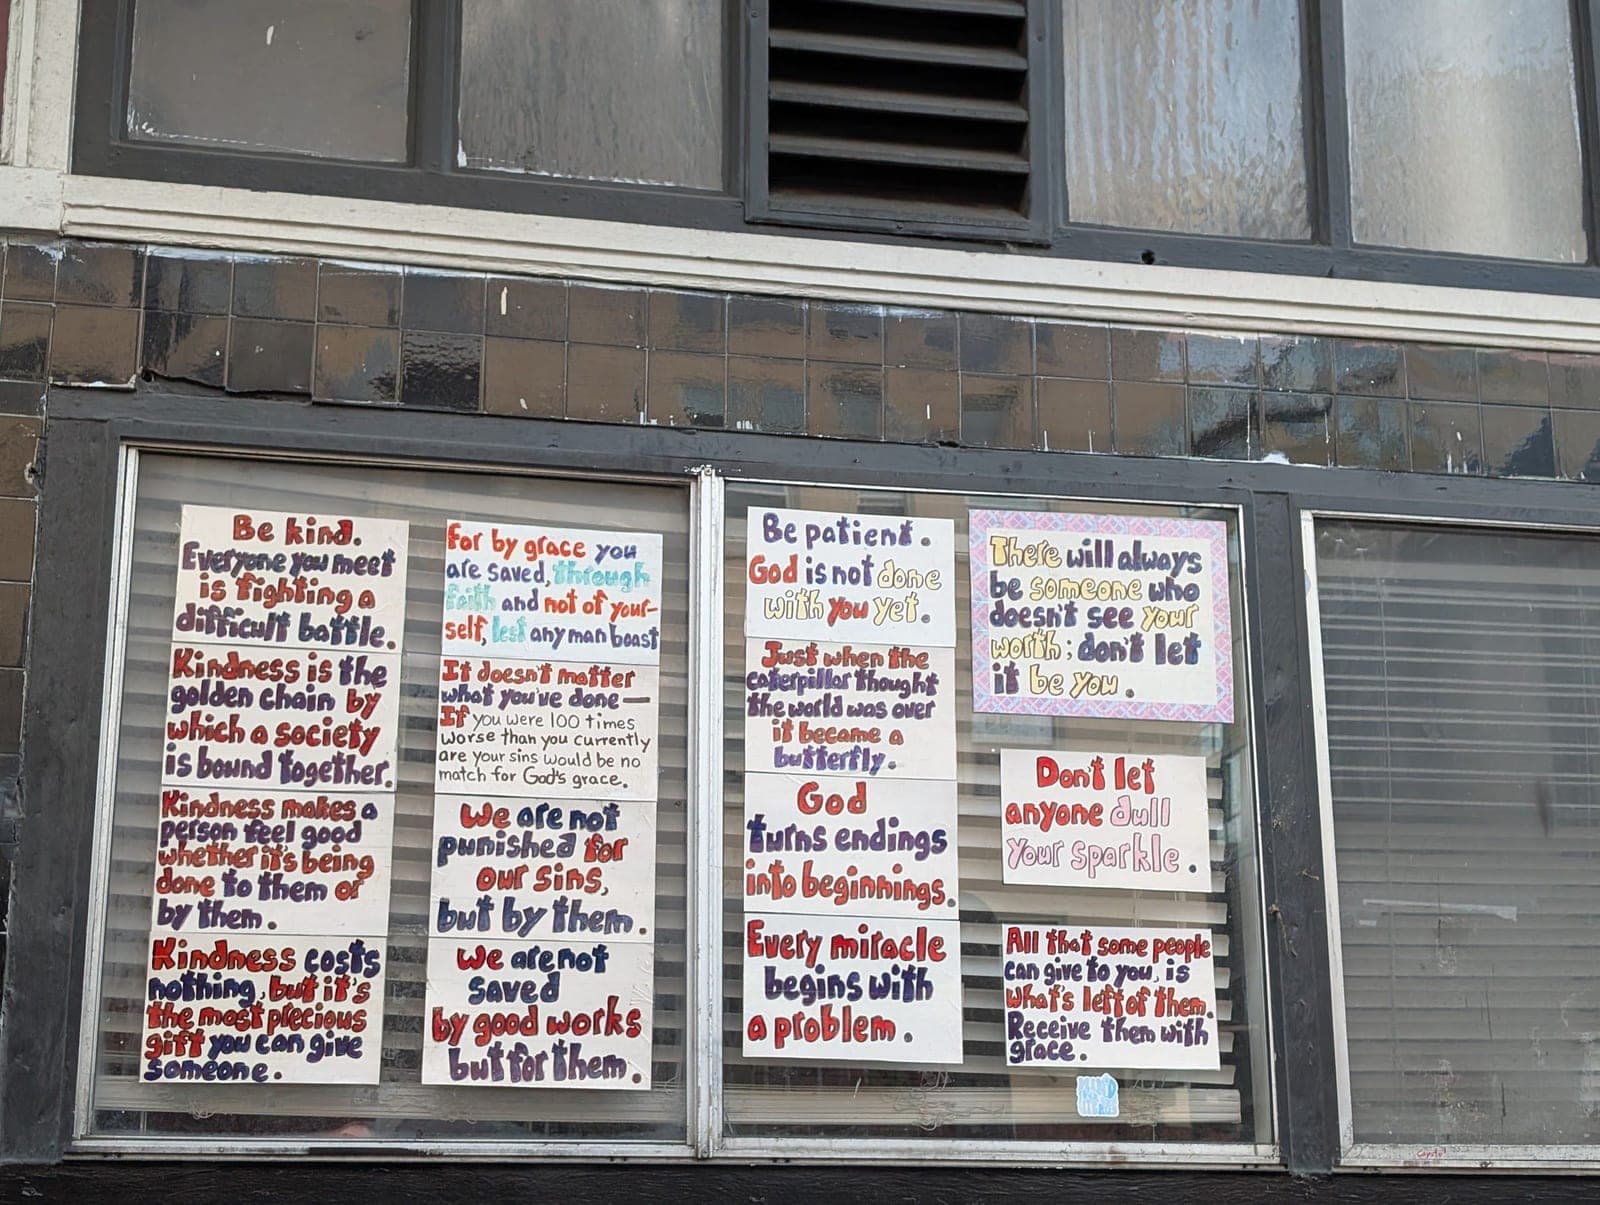 Be kind.
Everyone you meet
is fighting a
difficult battle.
Kindness is the
golden chain by
which a society
is bound together.
Kindness makes a
person feel good
whether it's being
done to them or
by them.
Kindness costs
nothing, but it's
the most precious
gift you can give
someone.
For by grace you
are saved, through
faith and not of your-
self, lest any man boast
It doesn't matter
what you've done—
If you were 100 times
worse than you currently
are your sins would be no
match for God's grace.
We are not
punished for
our sins,
but by them.
We are not
saved
by good works
but for them.
Be patient.
God is not done
with you yet.
Just when the
caterpillar thought
the world was over
it became a
butterfly.
God
turns endings
into beginnings.
Every miracle
begins with
a problem.
There will always
be someone who
doesn't see your
worth; don't let
it be you.
Don't let
anyone dull
your sparkle.
All that some people
can give to you, is
what's left of them.
Receive them with
grace.